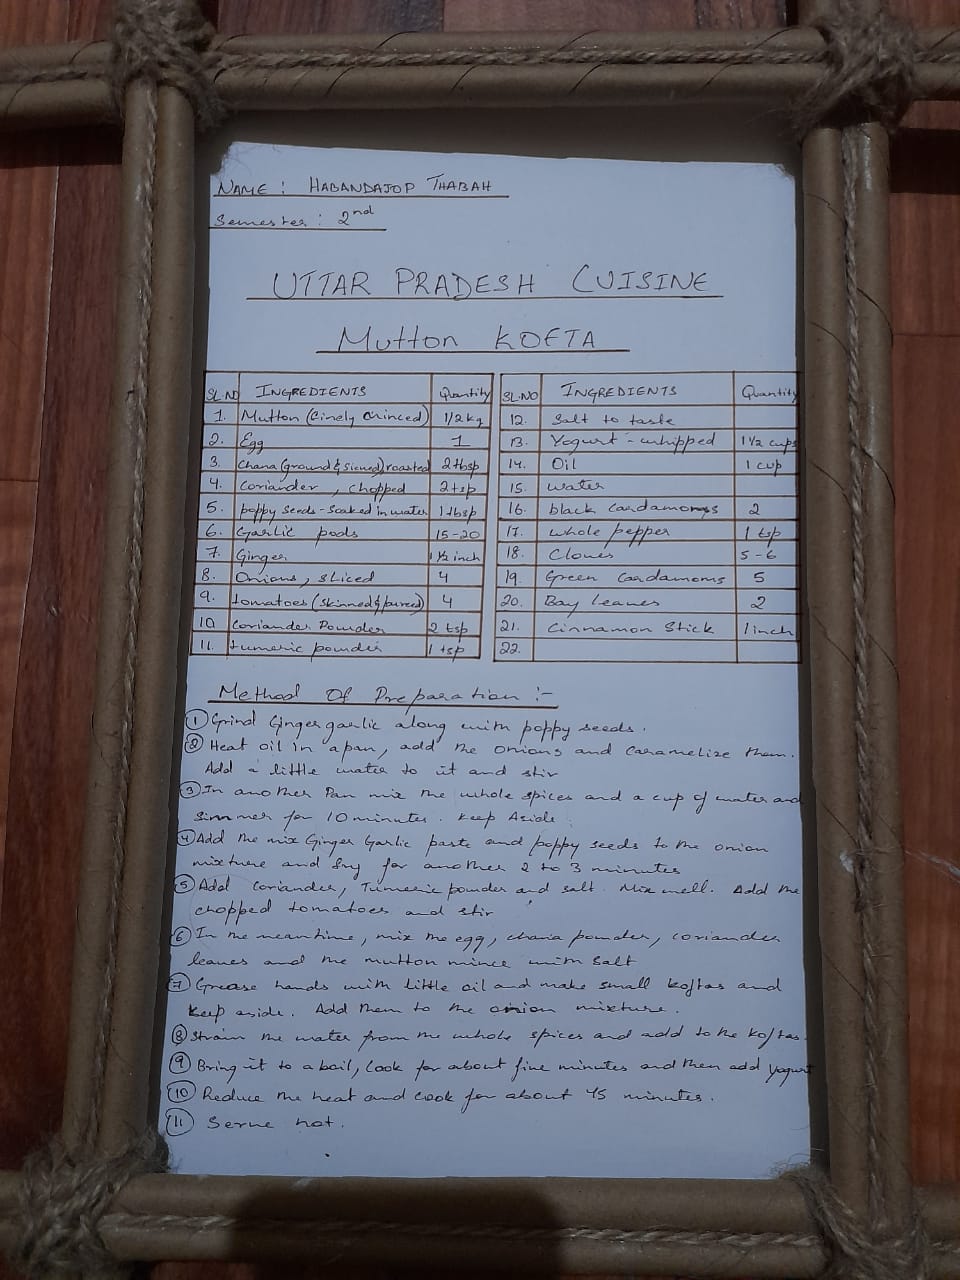 NAME : HABANDAJOP THABAH
Semester : 2nd
UTTAR PRADESH CUISINE
Mutton KOFTA
SL.NO INGREDIENTS Quantity
1. Mutton (finely minced) 1/2 kg
2. Egg 1
3. Chana (ground & sieved) roasted 2 tbsp
4. Coriander , chopped 2 tsp
5. poppy seeds - soaked in water 1 tbsp
6. Garlic pods 15-20
7. Ginger 1 1/2 inch
8. Onions, sliced 4
9. tomatoes (skinned & pureed) 4
10 Coriander Powder 2 tsp
11. tumeric powder 1 tsp
SL.NO INGREDIENTS Quantity
12. Salt to taste
13. Yogurt - whipped 1 1/2 cups
14. Oil 1 cup
15. water
16. black Cardamoms 2
17. whole pepper 1 tsp
18. Cloves 5-6
19. Green Cardamoms 5
20. Bay leaves 2
21. Cinnamon Stick 1 inch
22.
Method Of Preparation :-
1 Grind Ginger garlic along with poppy seeds.
2 Heat oil in a pan, add the onions and caramelize them.
Add a little water to it and stir
3 In another Pan mix the whole spices and a cup of water and
simmer for 10 minutes. Keep Aside
4 Add the mix Ginger Garlic paste and poppy seeds to the onion
mixture and fry for another 2 to 3 minutes
5 Add coriander, Tumeric powder and salt. Mix well. Add the
chopped tomatoes and stir
6 In the meantime, mix the egg, chana powder, coriander
leaves and the mutton mince with salt
7 Grease hands with little oil and make small koftas and
keep aside. Add them to the onion mixture.
8 Strain the water from the whole spices and add to the koftas.
9 Bring it to a boil, Cook for about five minutes and then add yogurt
10 Reduce the heat and cook for about 45 minutes.
11 Serve hot.